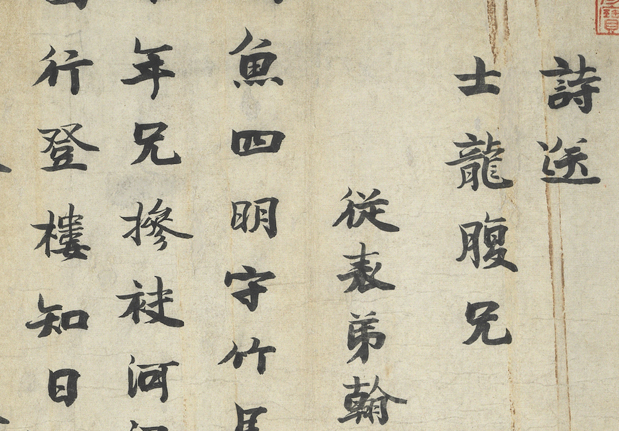 詩送
士龍腹兄
従表弟翰
魚四明守竹
年兄摻袂河
行登樓知日